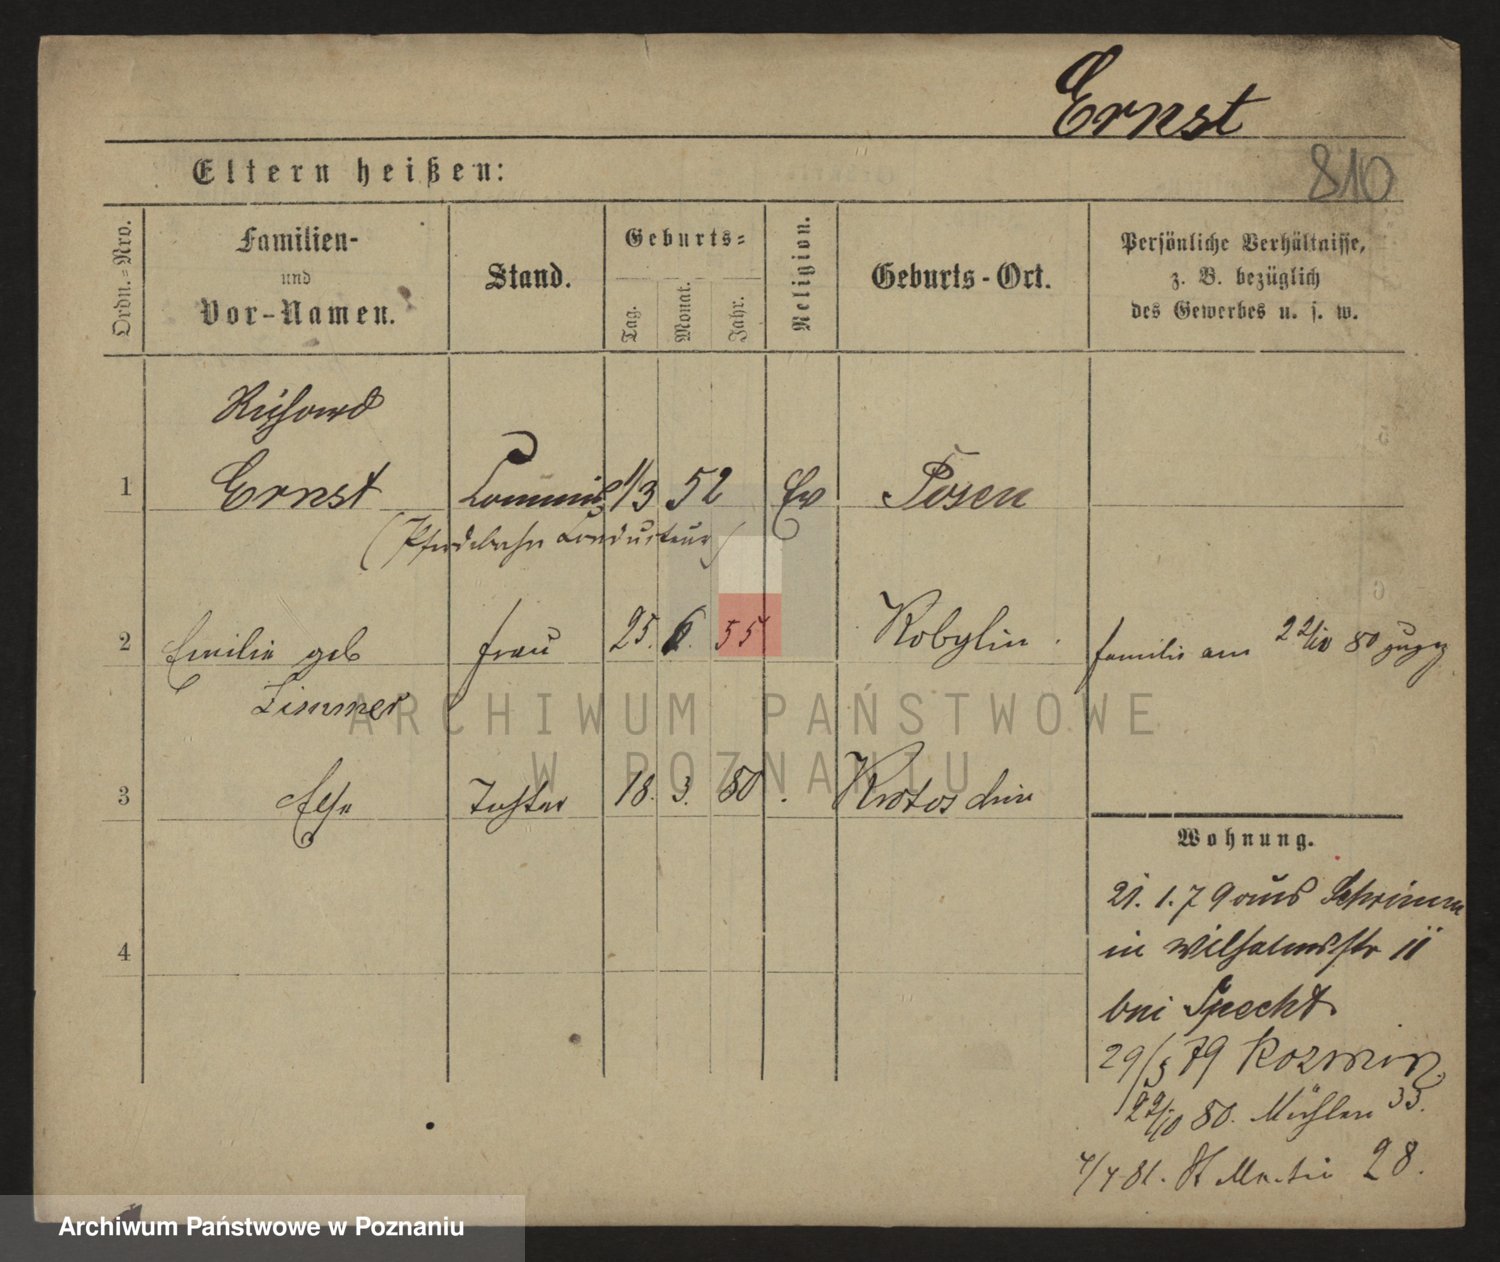 Ernst
810
Eltern heißen:
Ordn.=Nro.
Familien-
und
Vor-Namen.
Stand.
Geburts=
Tag.
Monat.
Jahr.
Religion.
Geburts-Ort.
Persönliche Verhältnisse,
z. B. bezüglich
des Gewerbes u. s. w.
Richard
1 Ernst Commis 1/3 52 Ev Posen
(Pferdebahn Conducteur)
2 Emilie geb Frau 25. 6. 55 Kobylin. Familie am 22/10 80 zugez
Zimmer
3 Else Tochter 18. 3. 80. Krotoschin
Wohnung.
21. 1. 79 aus Schrimm
4 in Wilhelmsstr 11
bei Specht
29/3 79 Kozmin
22/10 80. Mühlen 33.
4/4 81. St Martin 28.
ARCHIWUM PAŃSTWOWE
W POZNANIU
Archiwum Państwowe w Poznaniu